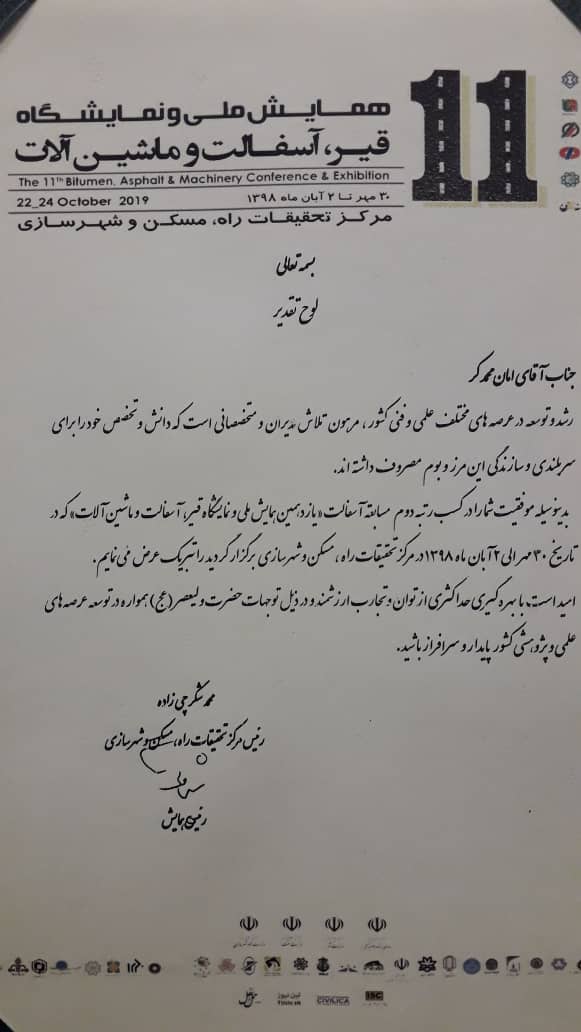 11
همایش ملی و نمایشگاه
قیر، آسفالت و ماشین آلات
The 11th Bitumen, Asphalt & Machinery Conference & Exhibition
22_24 October 2019
۳۰ مهر تا ۲ آبان ماه ۱۳۹۸
مرکز تحقیقات راه، مسکن و شهرسازی
بسمه تعالی
لوح تقدیر
جناب آقای امان محمد کر
رشد و توسعه در عرصه های مختلف علمی و فنی کشور، مرهون تلاش مدیران و متخصصانی است که دانش و تخصص خود را برای
سربلندی و سازندگی این مرز و بوم مصروف داشته اند.
بدینوسیله موفقیت شما را در کسب رتبه دوم مسابقه آسفالت «یازدهمین همایش ملی و نمایشگاه قیر، آسفالت و ماشین آلات» که در
تاریخ ۳۰ مهر الی ۲ آبان ماه ۱۳۹۸ در مرکز تحقیقات راه، مسکن و شهرسازی برگزار گردید را تبریک عرض می نمایم.
امید است، با بهره گیری حداکثری از توان و تجارب ارزشمند و در ذیل توجهات حضرت ولیعصر (عج) همواره در توسعه عرصه های
علمی و پژوهشی کشور پایدار و سرافراز باشید.
محمد شکرچی زاده
رئیس مرکز تحقیقات راه، مسکن و شهرسازی
رئیس همایش
CIVILICA
ISC